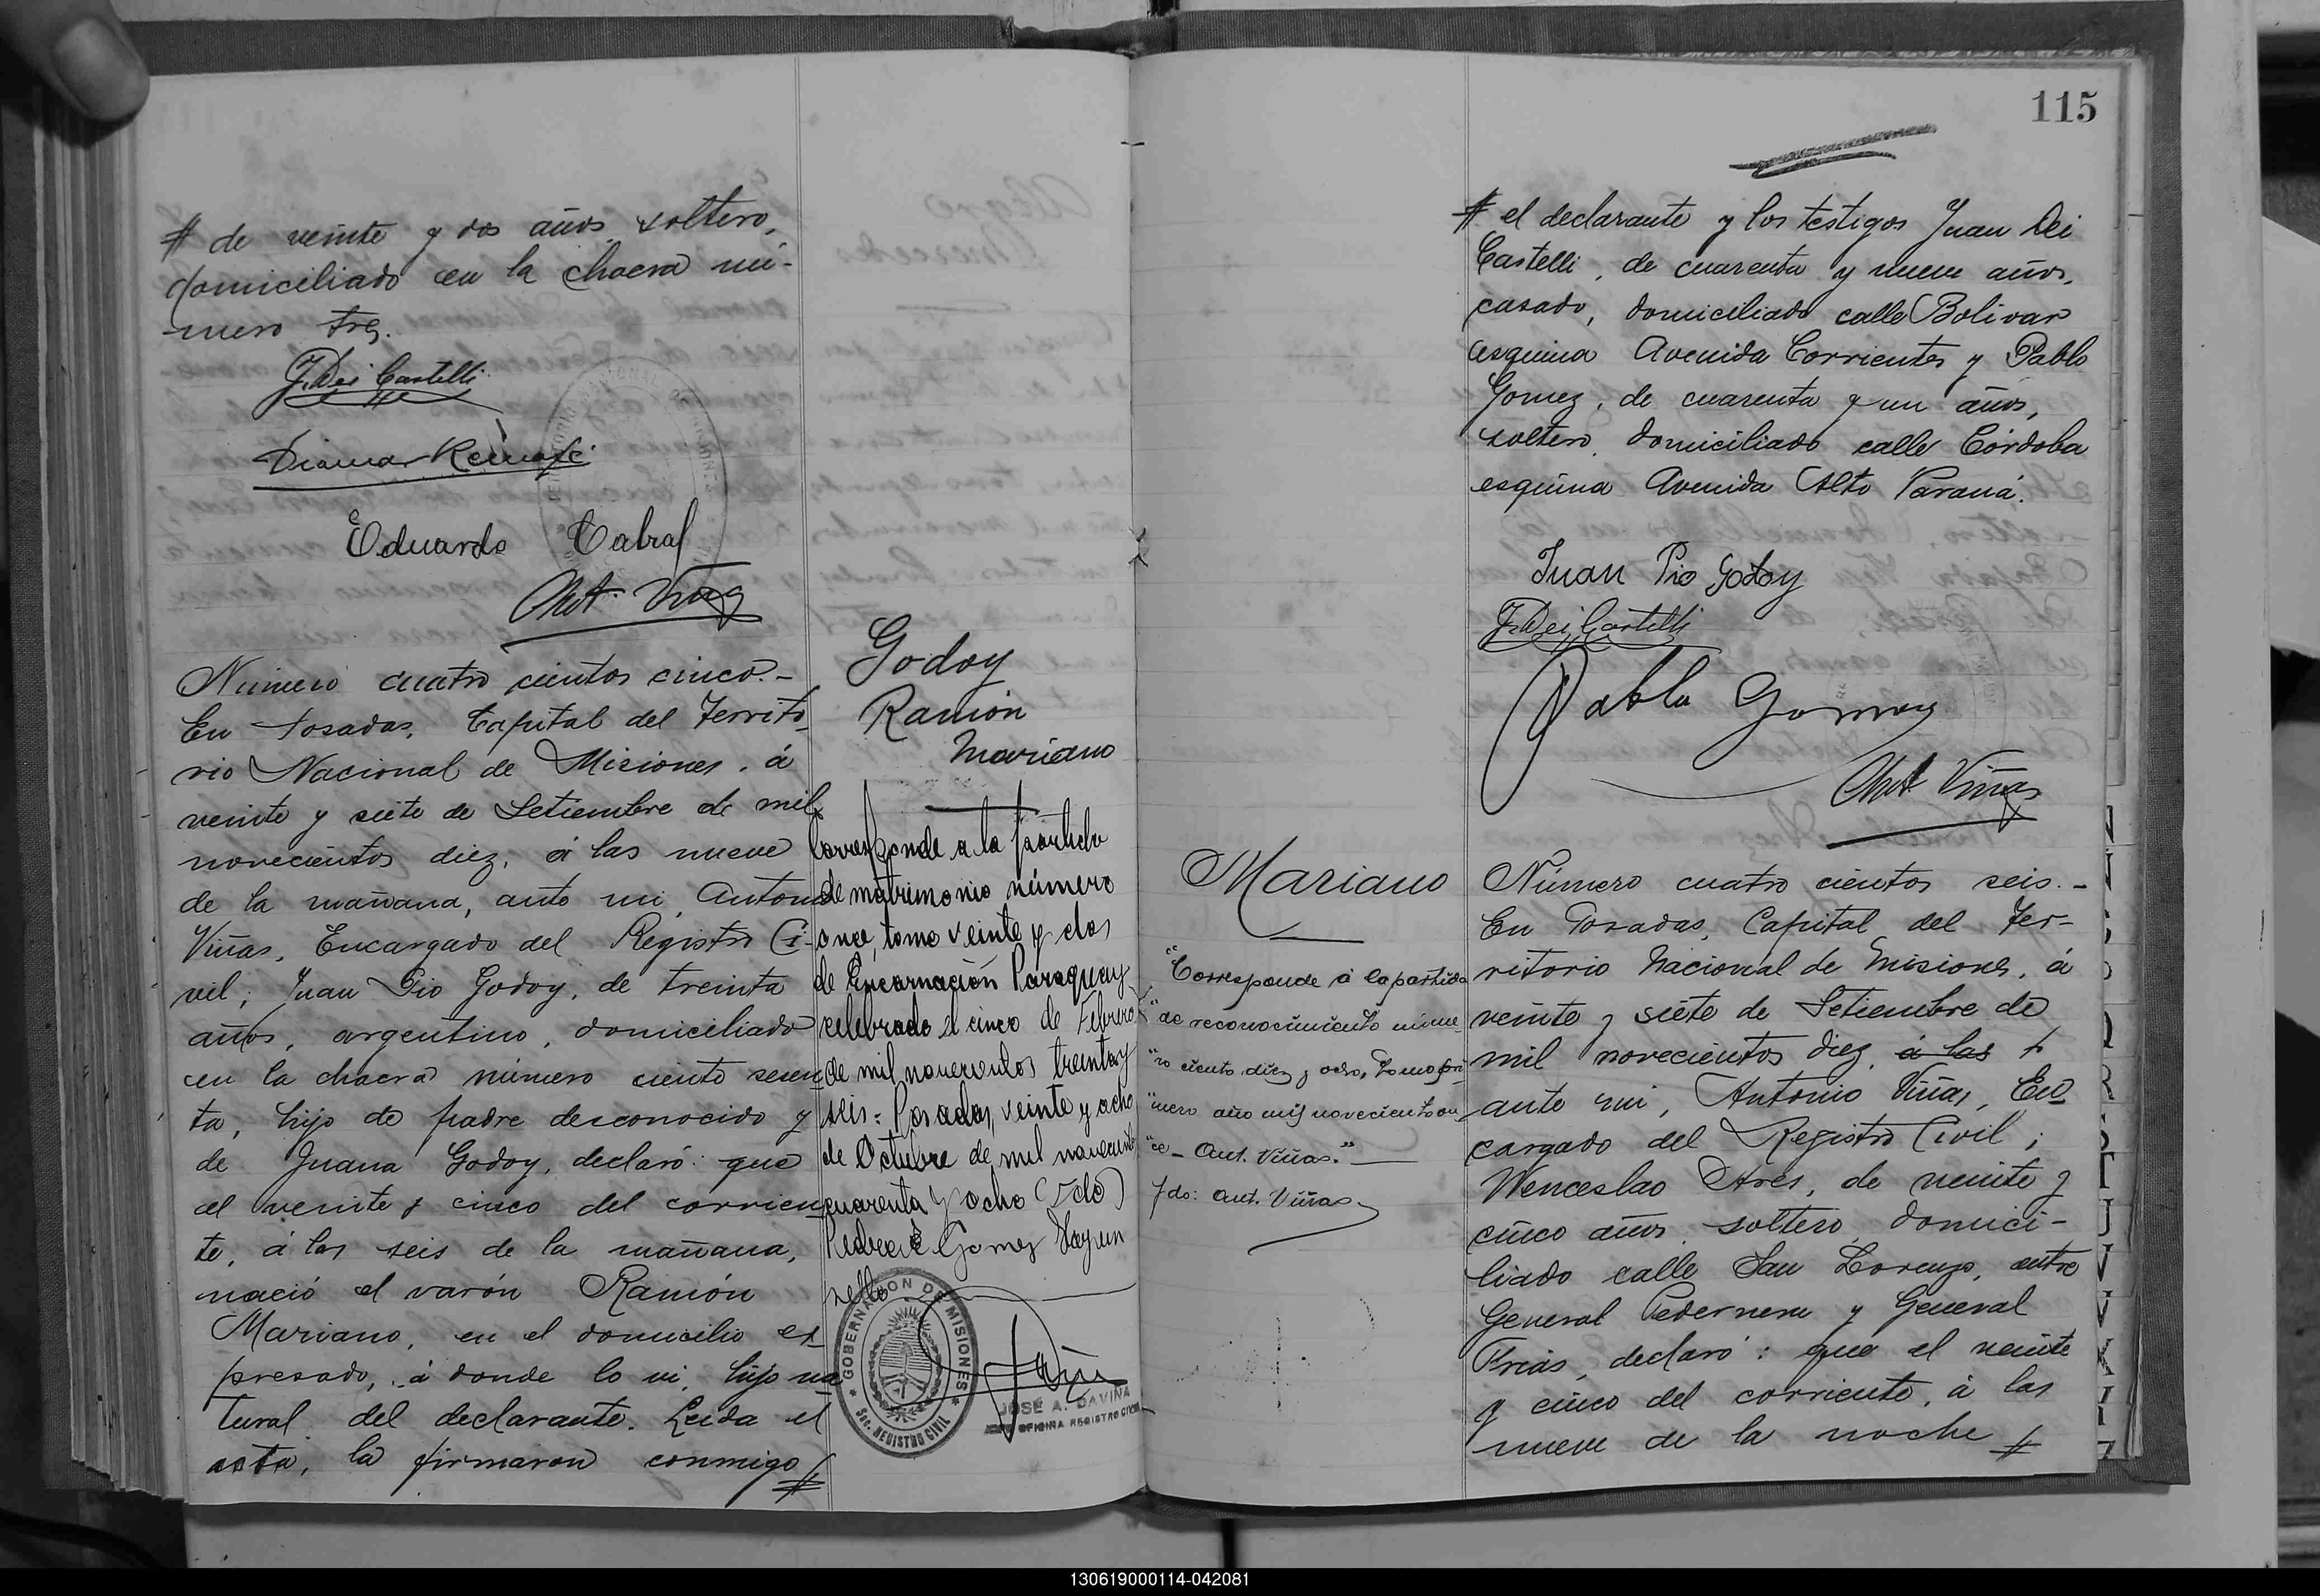 # de veinte y dos años, soltero,
domiciliado en la chacra nú-
mero tres.
J. Dei Castelli
Eduardo Cabral
Ant. Viñas
Número cuatro cientos cinco.-
En Posadas, Capital del Territo
rio Nacional de Misiones, á
veinte y siete de Setiembre de mil
novecientos diez, á las nueve
de la mañana, ante mi, Antonio
Viñas, Encargado del Registro Ci-
vil; Juan Pio Godoy, de treinta
años, argentino, domiciliado
en la chacra número ciento sesen
ta, hijo de padre desconocido y
de Juana Godoy, declaró: que
el veinte y cinco del corrien
te, á las seis de la mañana,
nació el varón Ramón
Mariano, en el domicilio es
presado, á donde lo vi, hijo na
tural del declarante. Leida el
acta, la firmaron conmigo #
Godoy
Ramón
Mariano
Corresponde a la partida
de matrimonio número
once, tomo veinte y dos
de Encarnación Paraguay
celebrado el cinco de Febrero
de mil novecientos treinta y
seis: Posadas, veinte y ocho
de Octubre de mil novecientos
cuarenta y ocho (Fdo)
Gomez Hay un
sello
GOBERNACION DE MISIONES
Sec. REGISTRO CIVIL
JOSÉ A. DAVIÑA
JEFE OFICINA REGISTRO CIVIL
115
# el declarante y los testigos Juan Dei
Castelli, de cuarenta y nueve años,
casado, domiciliado calle Bolivar
esquina Avenida Corrientes y Pablo
Gomez, de cuarenta y un años,
soltero, domiciliado calle Córdoba
esquina Avenida Alto Paraná.
Juan Pio Godoy
J. Dei Castelli
Pablo Gomez
Ant Viñas
Mariano
"Corresponde á la partida
"de reconocimiento núme-
"ro ciento diez y ocho, Tomo pri-
"mero año mil novecientos on
"ce - Ant. Viñas."
fdo: Ant. Viñas
Número cuatro cientos seis.-
En Posadas, Capital del Ter-
ritorio Nacional de Misiones, á
veinte y siete de Setiembre de
mil novecientos diez, á las +
ante mi, Antonio Viñas, En
cargado del Registro Civil;
Wenceslao Ares, de veinte y
cinco años, soltero, domici-
liado calle San Lorenzo, entre
General Pedernera y General
Frias, declaró: que el veinte
y cinco del corriente, á las
nueve de la noche #
130619000114-042081